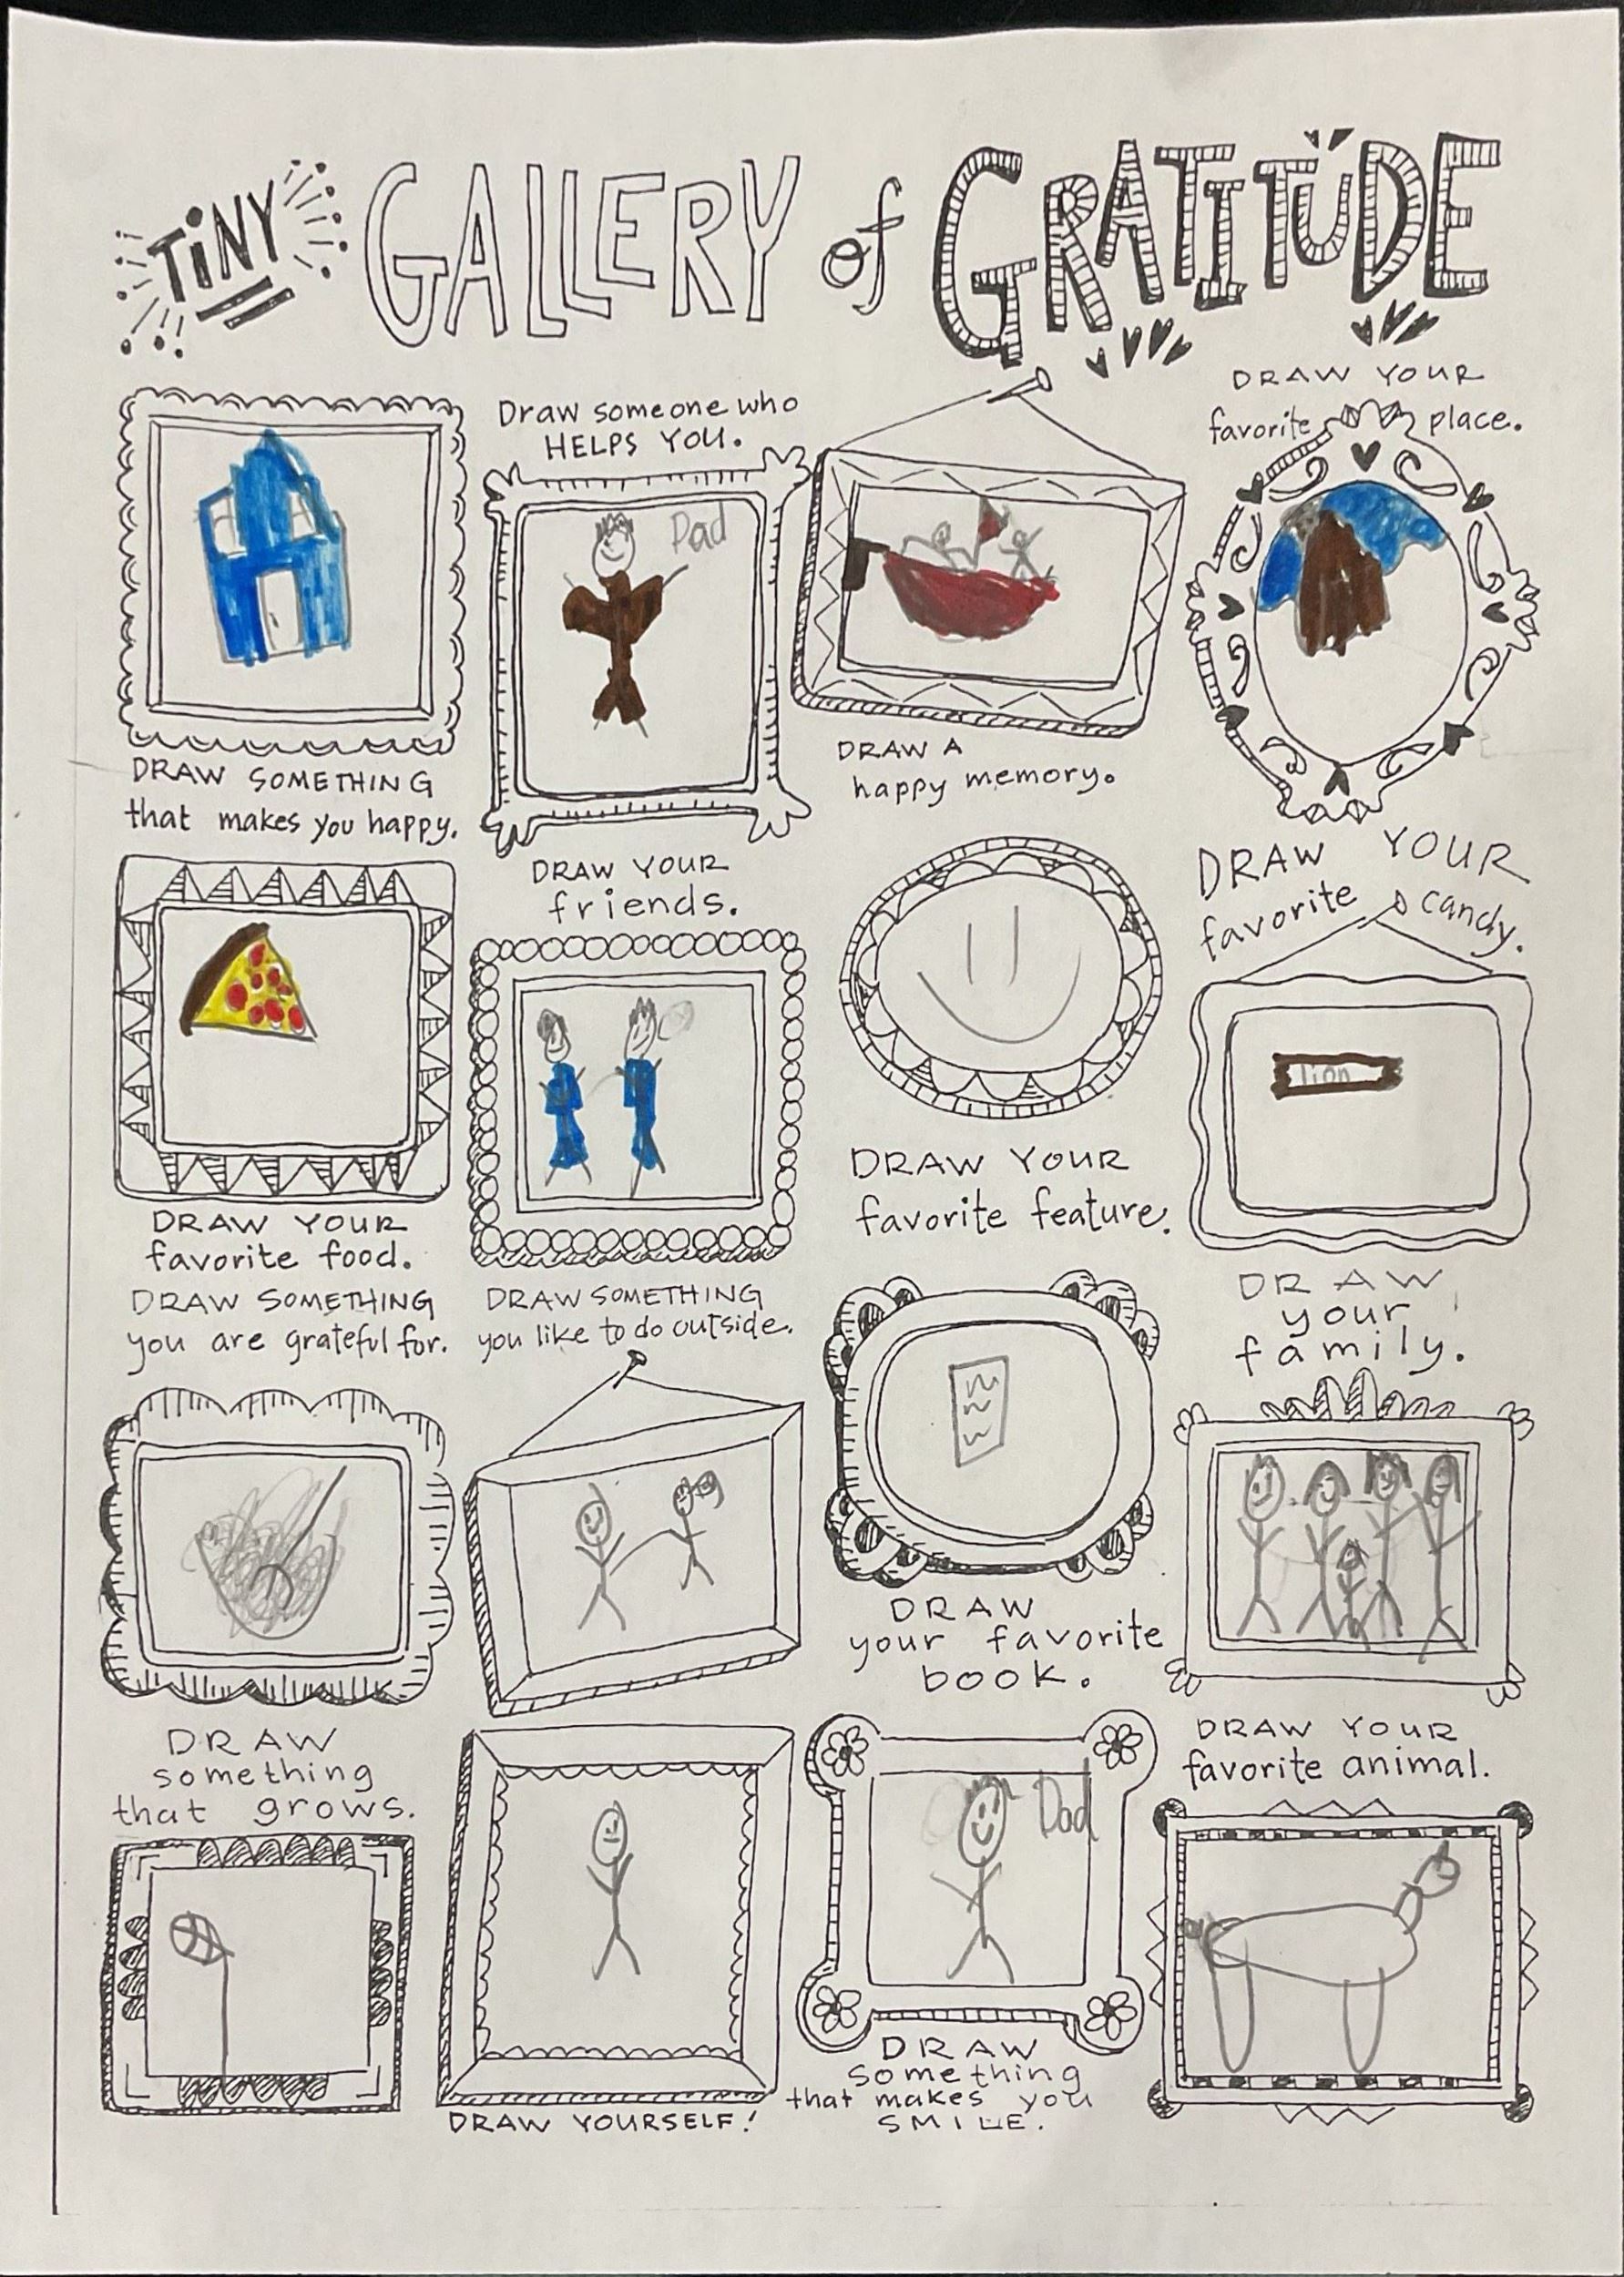 TiNY GALLERY of GRATITUDE
Draw someone who
HELPS YOU.
DRAW YOUR
favorite place.
Dad
DRAW SOMETHING
that makes you happy.
DRAW A
happy memory.
DRAW YOUR
friends.
DRAW YOUR
favorite candy.
lion
DRAW YOUR
favorite food.
DRAW YOUR
favorite feature.
DRAW SOMETHING
you are grateful for.
DRAW SOMETHING
you like to do outside.
DRAW
your
family.
DRAW
your favorite
book.
DRAW
something
that grows.
DRAW YOUR
favorite animal.
Dad
DRAW YOURSELF!
DRAW
something
that makes you
SMILE.